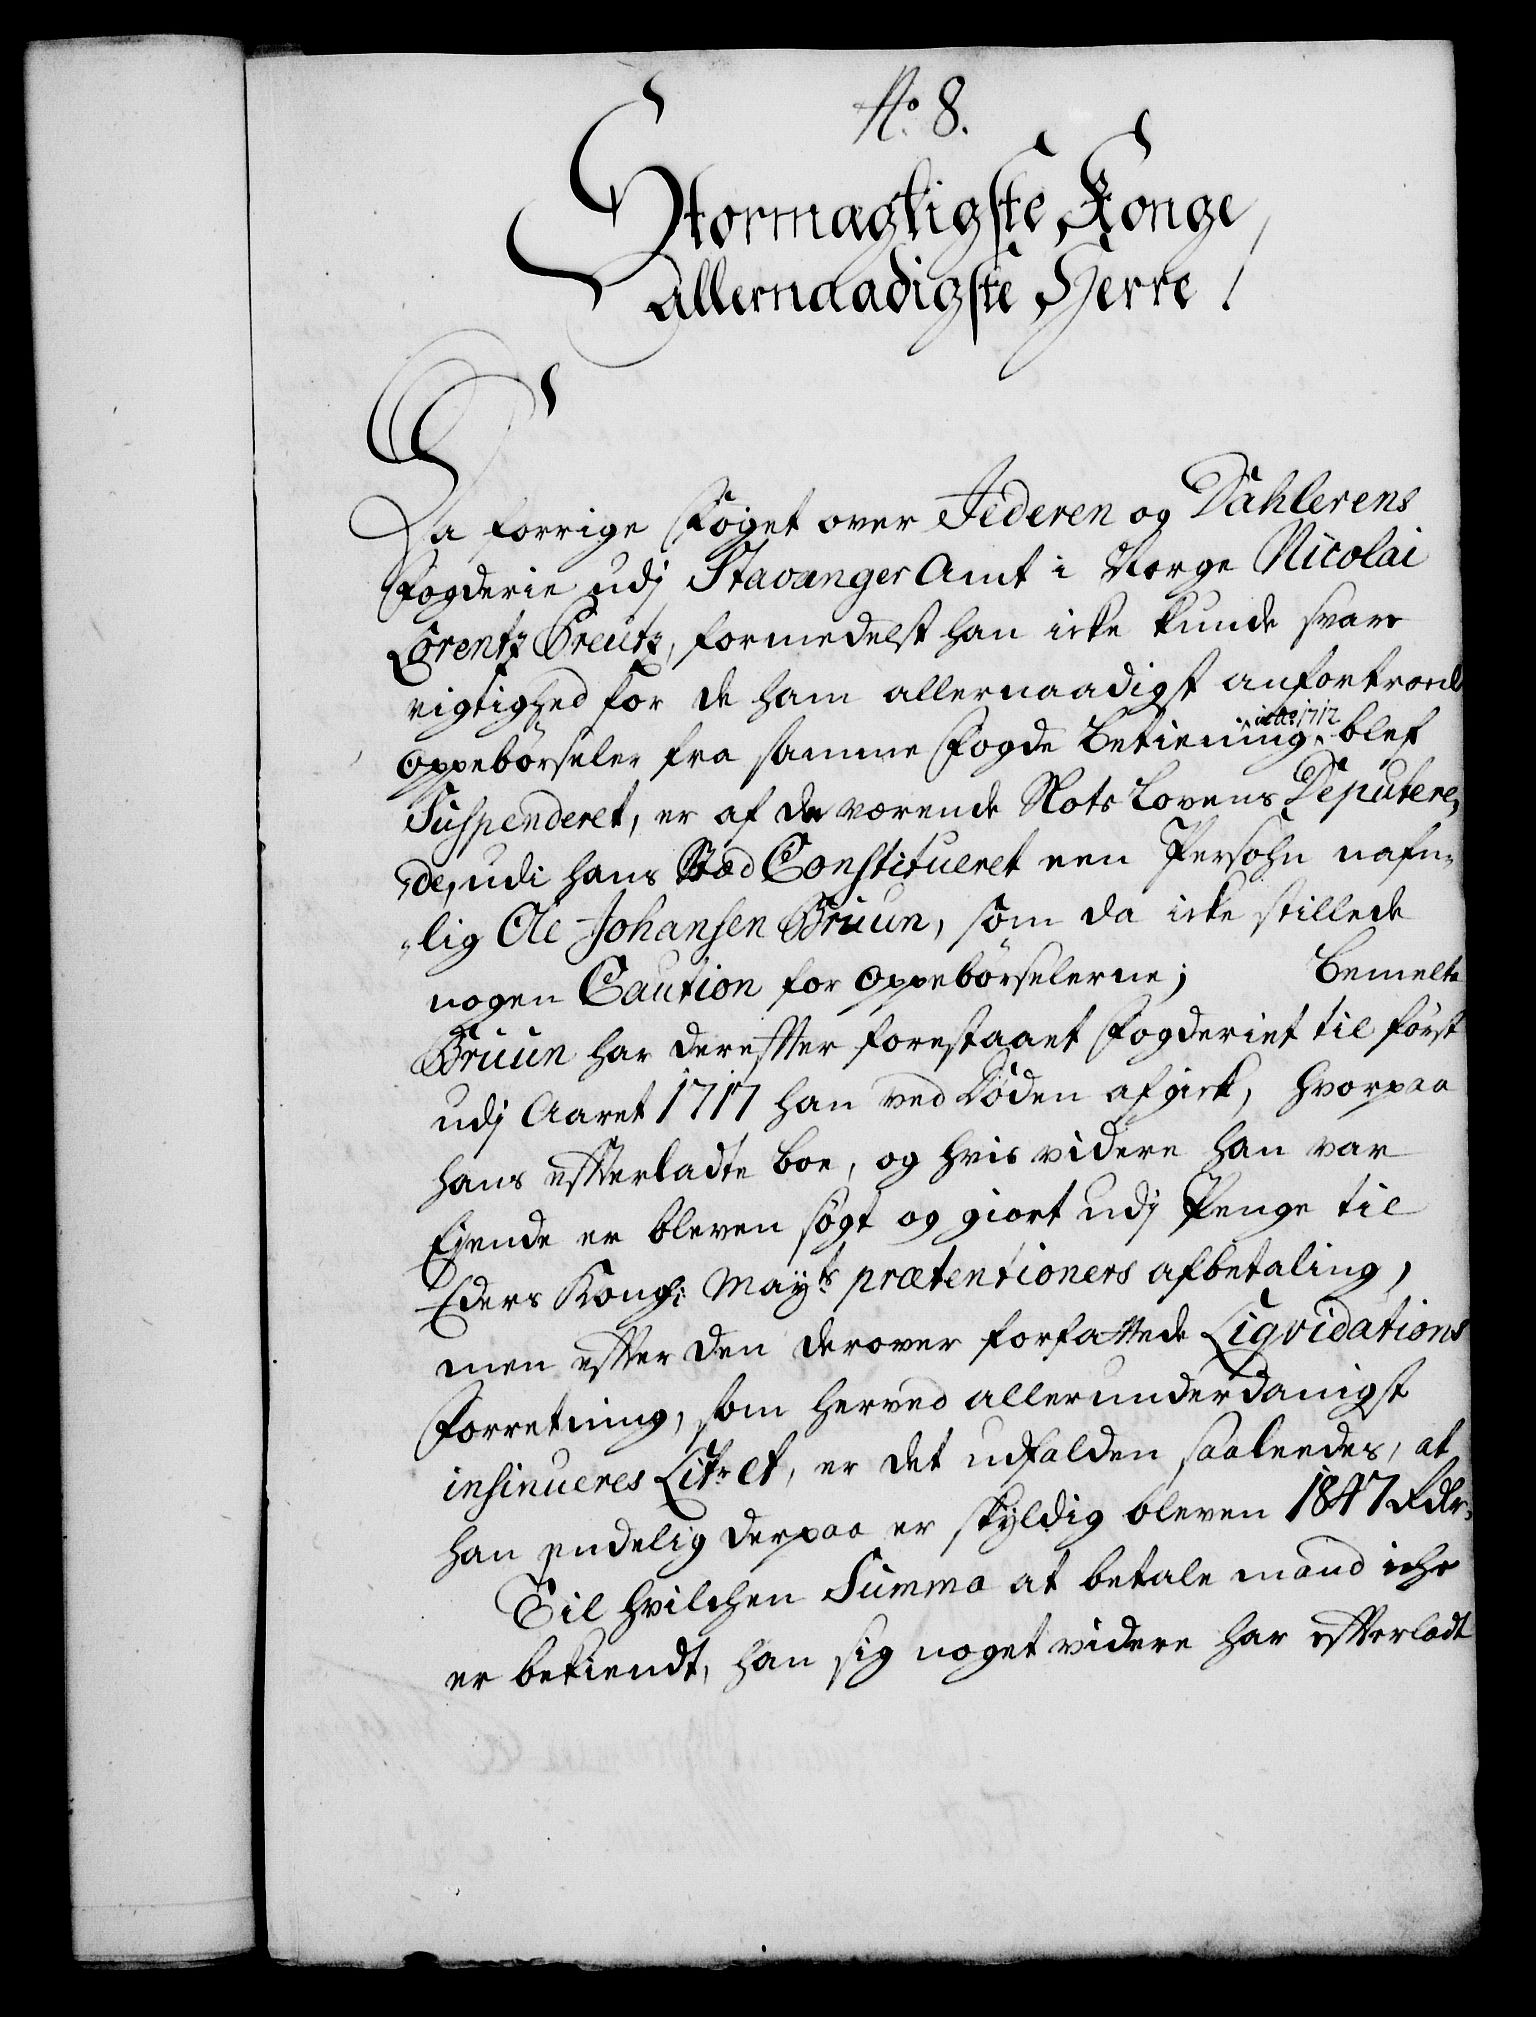 No. 8.
Stormagtigste Konge
Allernaadigste Herre!
Da forrige Foget over Jederen og Dahlerens
Fogderie udj Stavanger Amt i Norge Nicolai
Lorentz Creutz, formedelst han icke kunde svare
rigtighed for de ham allernaadigst anfortroede
Oppebörseler fra samme Fogde Betiening 1712 blef
Suspenderet, er af da værende Slots Lovens Deputere,
,de, udi hans Stæd Constitueret een Persohn nafn„
„lig Ole Johansen Bruun, som da icke stillede
nogen Caution for Oppebörselerne; Bemelte
Bruun har derefter forestaaet Fogderiet til först
udj Aaret 1717 han ved Döden afgick, hvorpaa
hans efterladte Boe, og hvis videre han var
Ejende er bleven sögt og giort udj Penge til
Eders Kongl: Mayts prætentioners afbetaling,
men efter den derover forfattede Liqvidations
Forretning, som herved allerunderdanigst
insinueres Litr et, er det udfalden saaleedes, at
han endelig derpaa er skyldig bleven 1847 Rdlr.
Til hvilchen Summa at betale mand iche
er bekiendt, han sig noget videre har efterladt